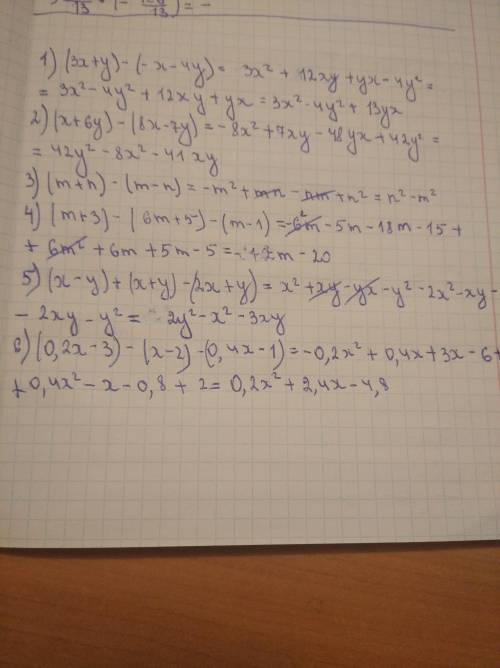 13
13
) = -
1) (3x+y) - (-x-4y) = 3x² + 12xy + yx - 4y² =
= 3x² - 4y² + 12xy + yx = 3x² - 4y² + 13yx
2) (x+6y) - (8x-7y) = -8x² + 7xy - 48yx + 42y² =
= 42y² - 8x² - 41xy
3) (m+n) - (m-n) = -m² + mn - nm + n² = n² - m²
4) (m+3) - (6m+5) - (m-1) = -6m² - 5m - 18m - 15 +
+ 6m² + 6m + 5m - 5 = -12m - 20
5) (x-y) + (x+y) - (2x+y) = x² + xy - yx - y² - 2x² - xy -
- 2xy - y² = 2y² - x² - 3xy
6) (0,2x-3) - (x-2) - (0,4x-1) = -0,2x² + 0,4x + 3x - 6 +
+ 0,4x² - x - 0,8 + 2 = 0,2x² + 2,4x - 4,8